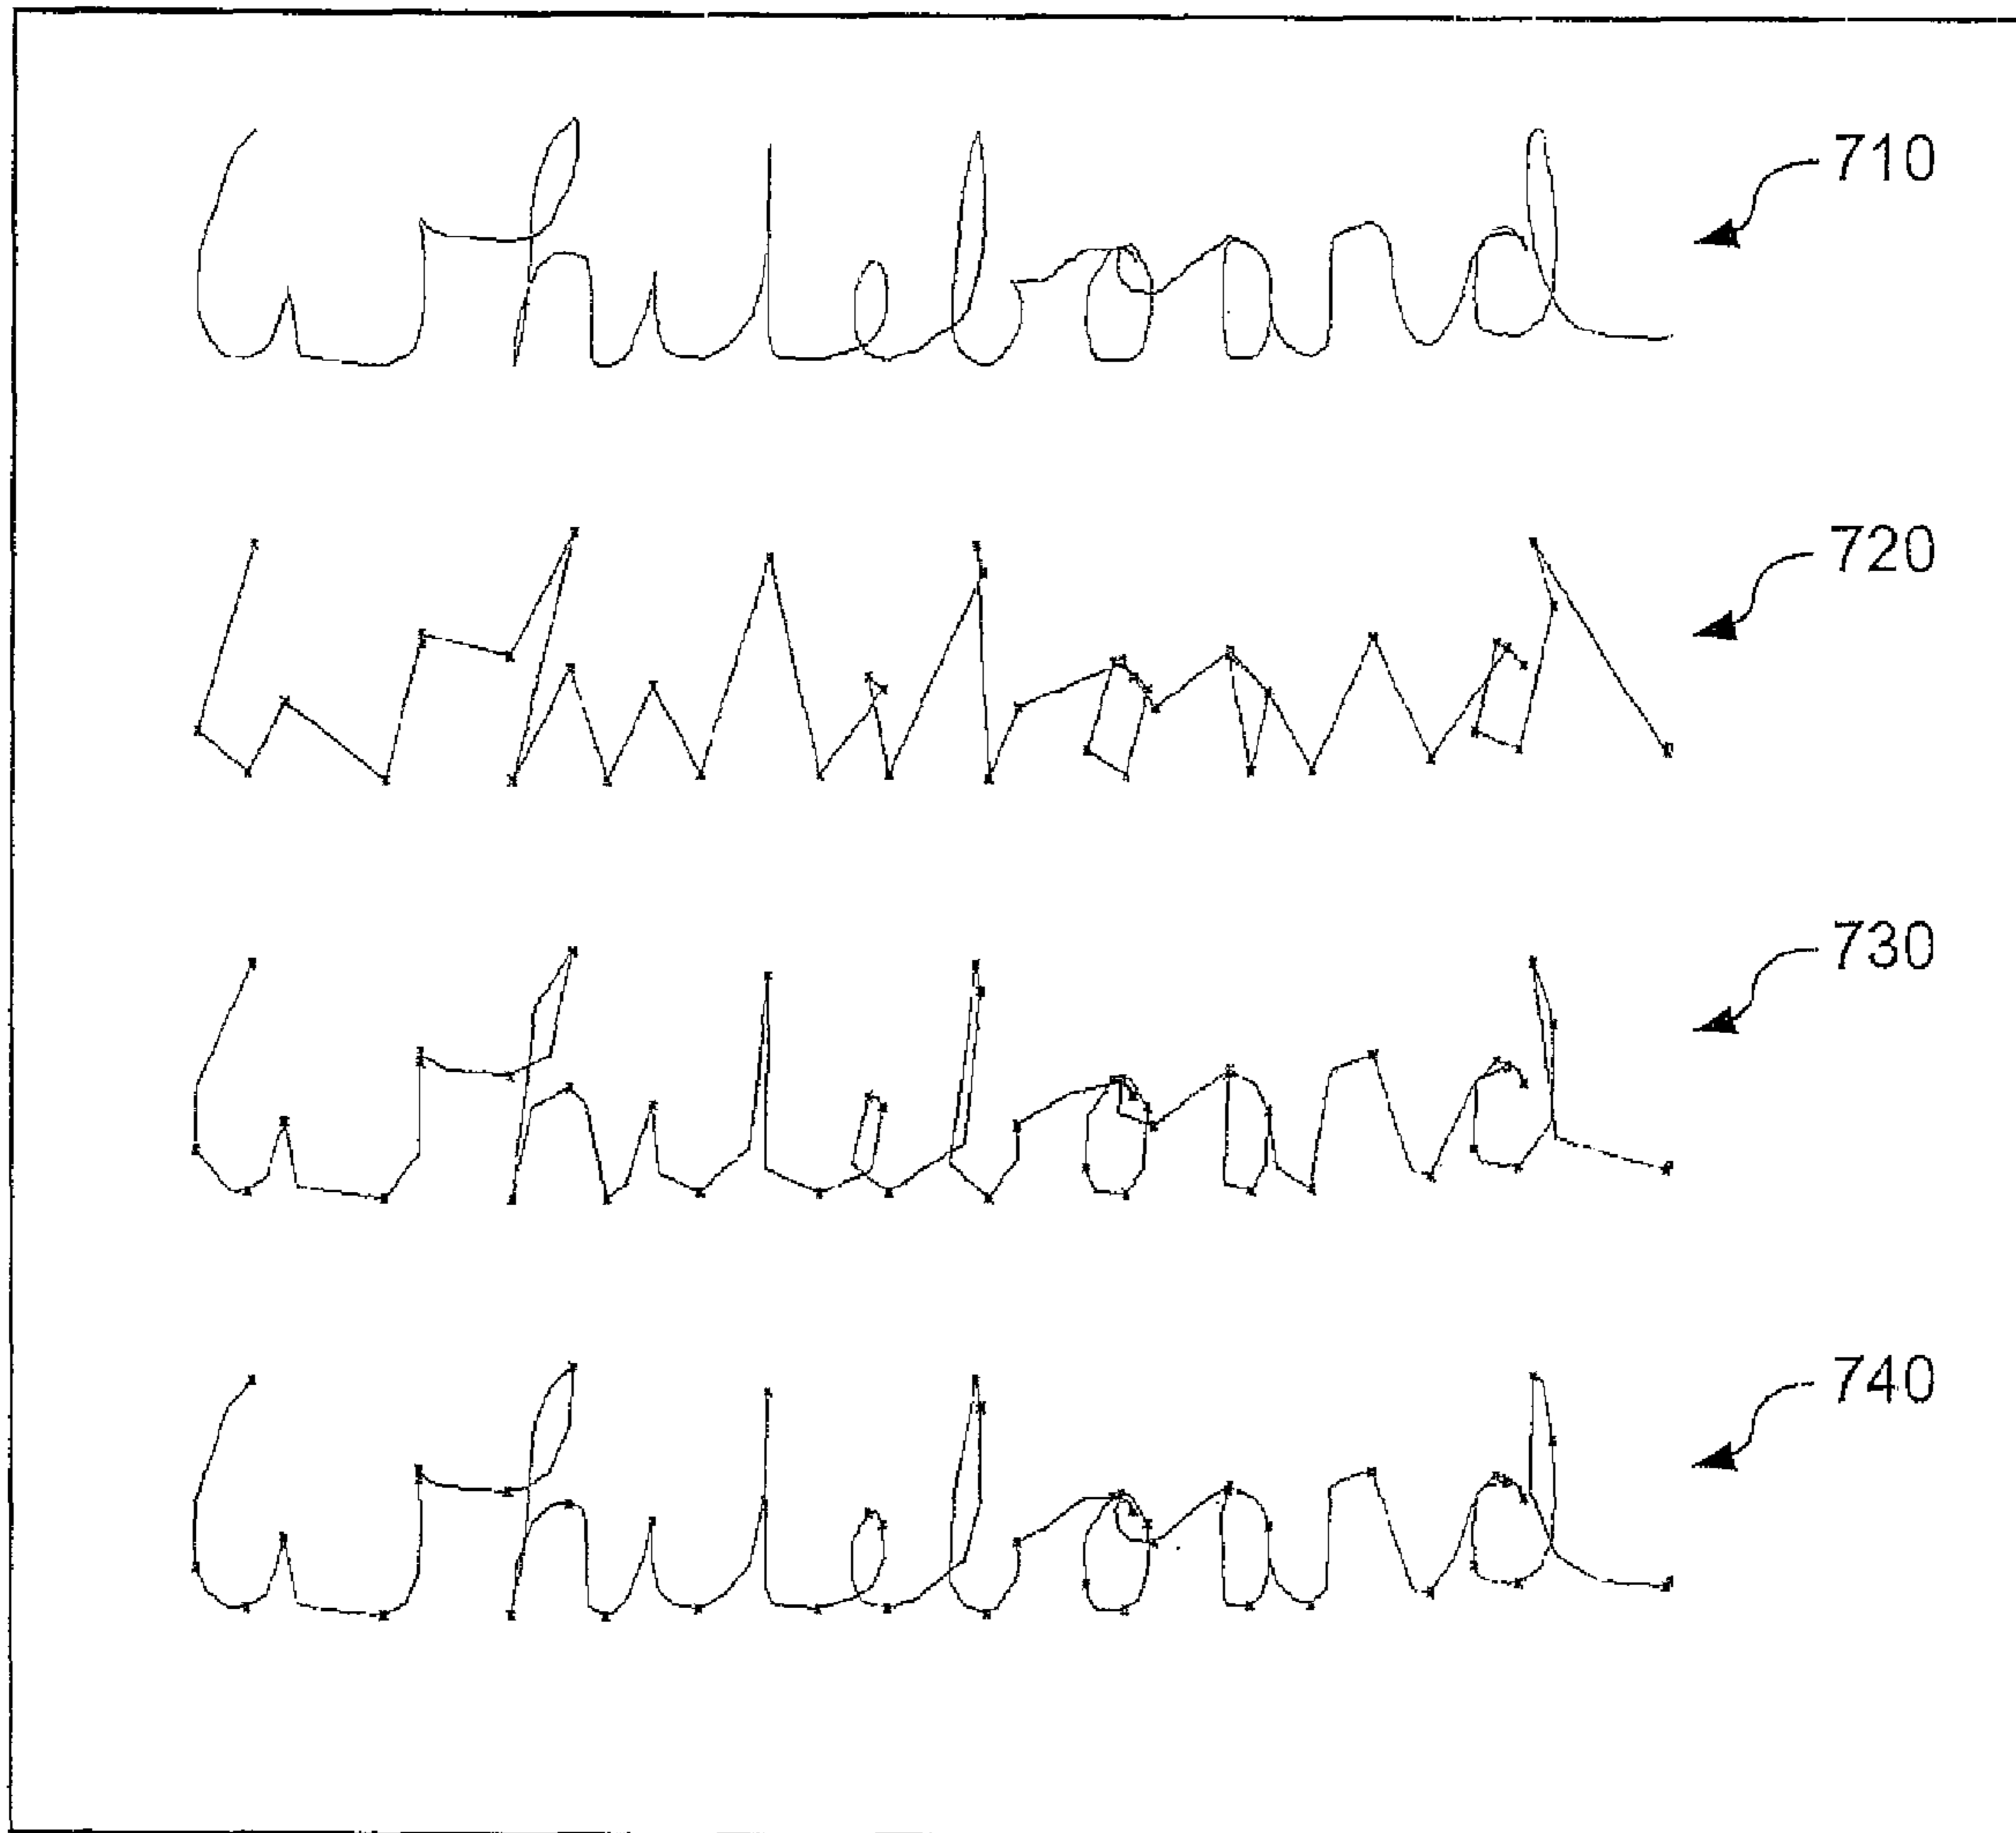 whiteboard 710
whiteboard 720
whiteboard 730
whiteboard 740